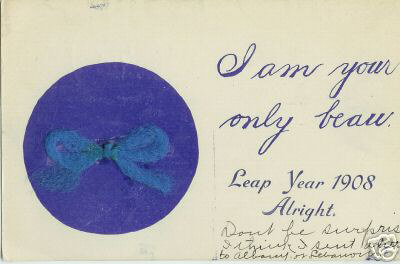 I am your
only beau.
Leap Year 1908
Alright.
Dont be surpris
I think I sent
to Albany or Lebanon